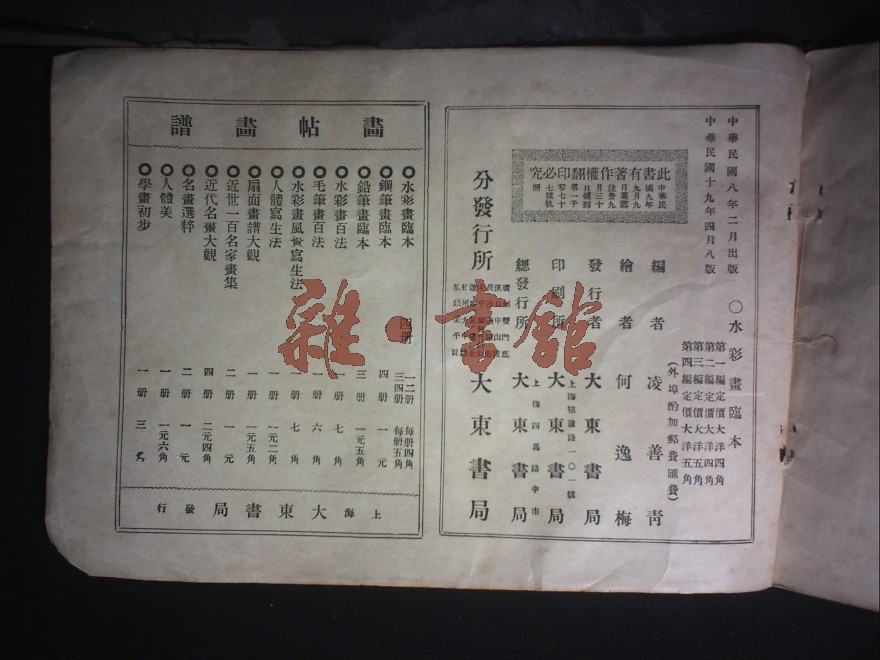 中華民國八年二月出版
中華民國十九年四月八版
○水彩畫臨本
第一編定價大洋四角
第二編定價大洋四角
第三編定價大洋五角
第四編定價大洋五角
(外埠酌加郵費匯費)
編者 凌善青
繪者 何逸梅
發行者 大東書局
印刷所 大東書局
上海
路一〇一號
總發行所 大東書局
上海四馬路中市
分發行所 大東書局
此書有著作權翻印必究
畫帖畫譜
水彩畫臨本 四册 一二册 每册四角 三四册 每册五角
鋼筆畫臨本 四册 一元
鉛筆畫臨本 三册 一元五角
水彩畫百法 一册 七角
毛筆畫百法 一册 六角
水彩畫風景寫生法 一册 七角
人體寫生法 一册 一元二角
扇面畫譜大觀 一册 一元五角
近世一百名家畫集 二册 一元
近代名畫大觀 四册 二元四角
名畫選粹 二册 一元
人體美 一册 一元六角
學畫初步 一册 三角
上海大東書局發行
雜·書館